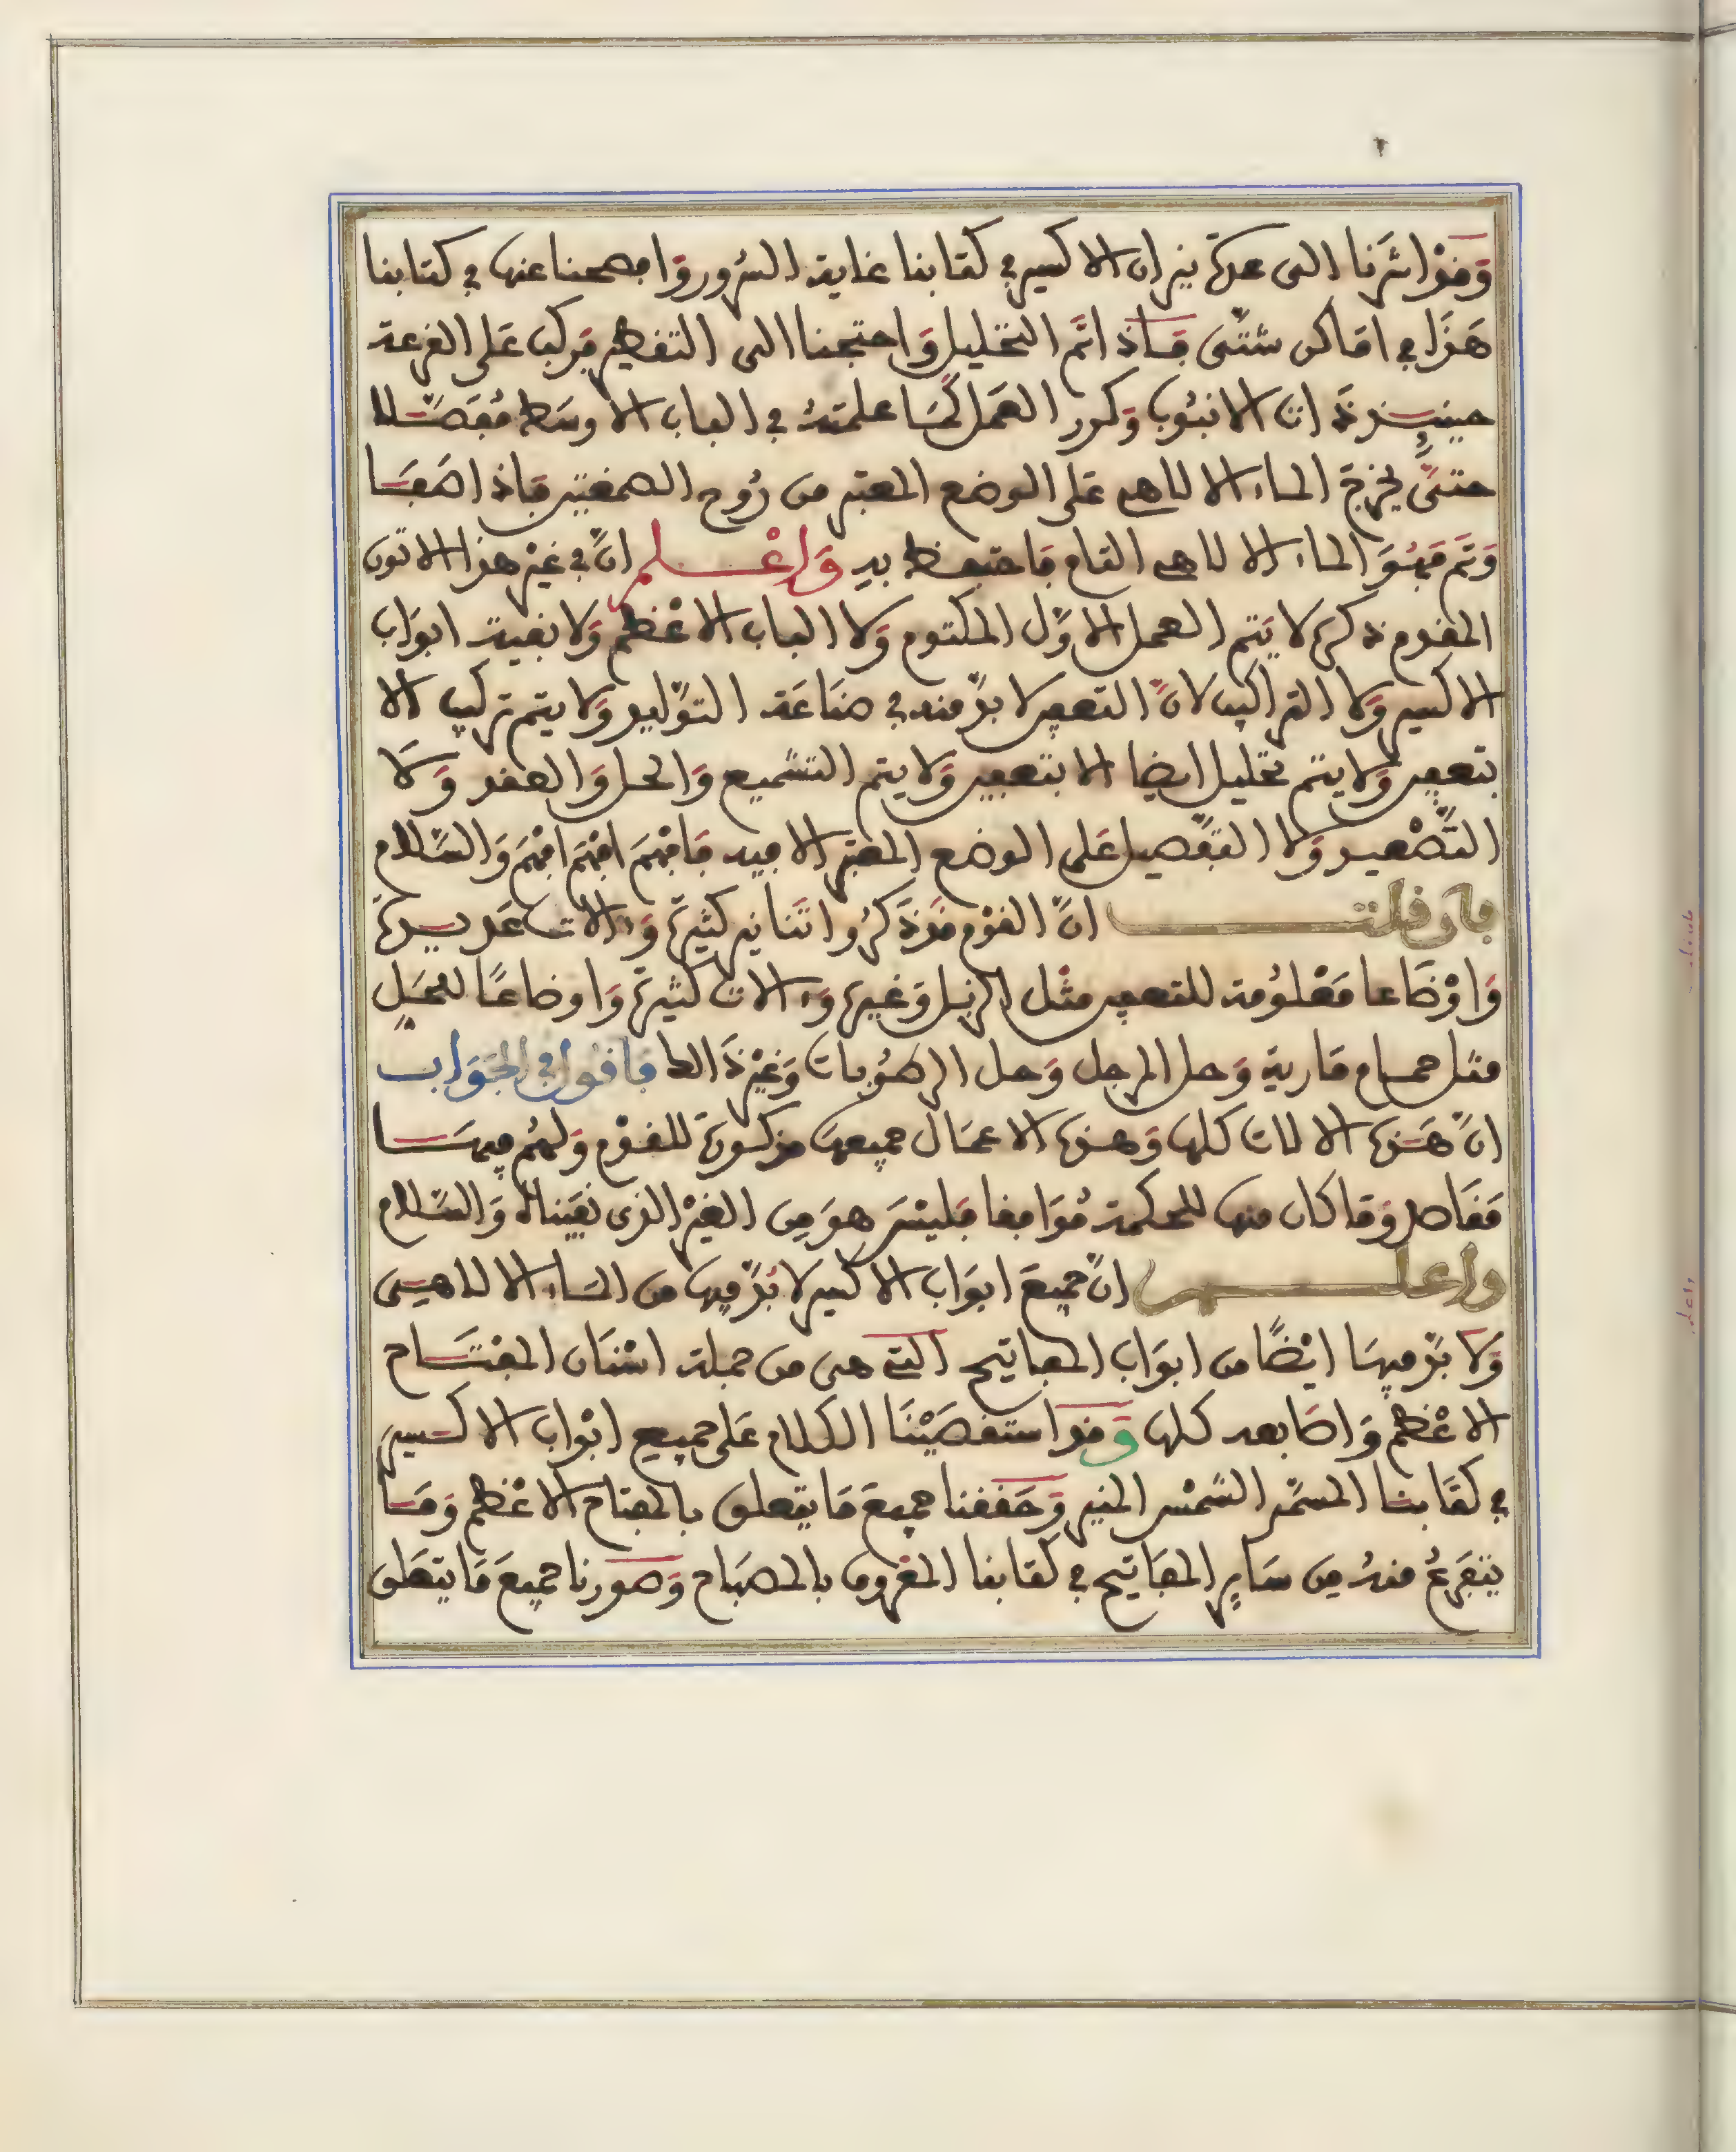 وَقَدْ اشَرْنا الى عدة نيران الاكسير في كتابنا غاية السُّرور وَافصحنا عنها في كتابنا
هَذَا في اماكن شَتَّى فَاذا تَم التحليل وَاحتجنا الى التقطير فركب عَلى القرعة
حينيذ ذات الانبُوب وَكرر العَمل كَمَا علمتهُ في الباب الاوسَط مُفَصَّلا
حتَّى يخرج الماء الالاهي عَلى الوضع المعتبر من رُوح الصمغتين فاذا صَفَا
وَتَم فَهُوَ الماء الالاهي التام فَاحتفظ به وَاعْلم انّ في غَيْر هذا الاتون
المقدم ذكره لا يَتم العمل الاوّل المكتوم وَلا الباب الاعْظم وَلا بقية ابوَاب
الاكسير وَلا التراكيب لانّ التعفين لا بدّ منه في صنَاعَة التوْليد وَلا يتم تركيب الا
بتعفين وَلا يتم تحليل ايضا الا بتعفين وَلا يتم التشميع وَالحل وَالعقد وَلا
التَّصْعيد وَلا التفْصيل عَلى الوضع المعتبر الا فيه فَافهَم افهَم افهَم وَالسَّلام
فان قلت انّ القوْم قَدْ ذَكرُوا اتنَانير كثيرة وَالات عَديدة
وَاوْضَاعا مَعْلُومة للتعفين مثْل الزبل وَغيره وَالات كثيرة وَاوضاعًا للحَل
مثل حمام مَارية وَحل المرجل وَحل الرطُوبات وَغيْر ذَالك فاقول في الجَوَاب
انّ هَذه الالات كلها وَهذه الاعمَال جميعها مذكورة للقوْم وَلهُم فيهَا
مَقَاصد وَمَا كان منها للحكمة مُوَافقا فَليْسَ هوَ مِن الغيْر الذى نفَيْناه وَالسَّلام
واعلم انّ جميعَ ابوَاب الاكسير لا بُدّ فيها من المَاء الالاهي
وَلا بدّ فيهَا ايْضًا من ابوَاب المفاتيح التي هي من جملة اسْنَان المفتَاح
الاعْظم وَاصَابعه كلها وَقد استقصَيْنَا الكلام عَلى جميع ابْوَاب الاكسير
في كتَابنا المسَمّى الشمْس المنير وَحَققنا جميعَ مَا يتعلق بالمفتاح الاعْظم وَمَا
يتفَرعُ منهُ مِن سَايِر المفَاتيح في كتابنا المقرون بالمصبَاح وَصَورنا جميعَ مَا يتعَلق